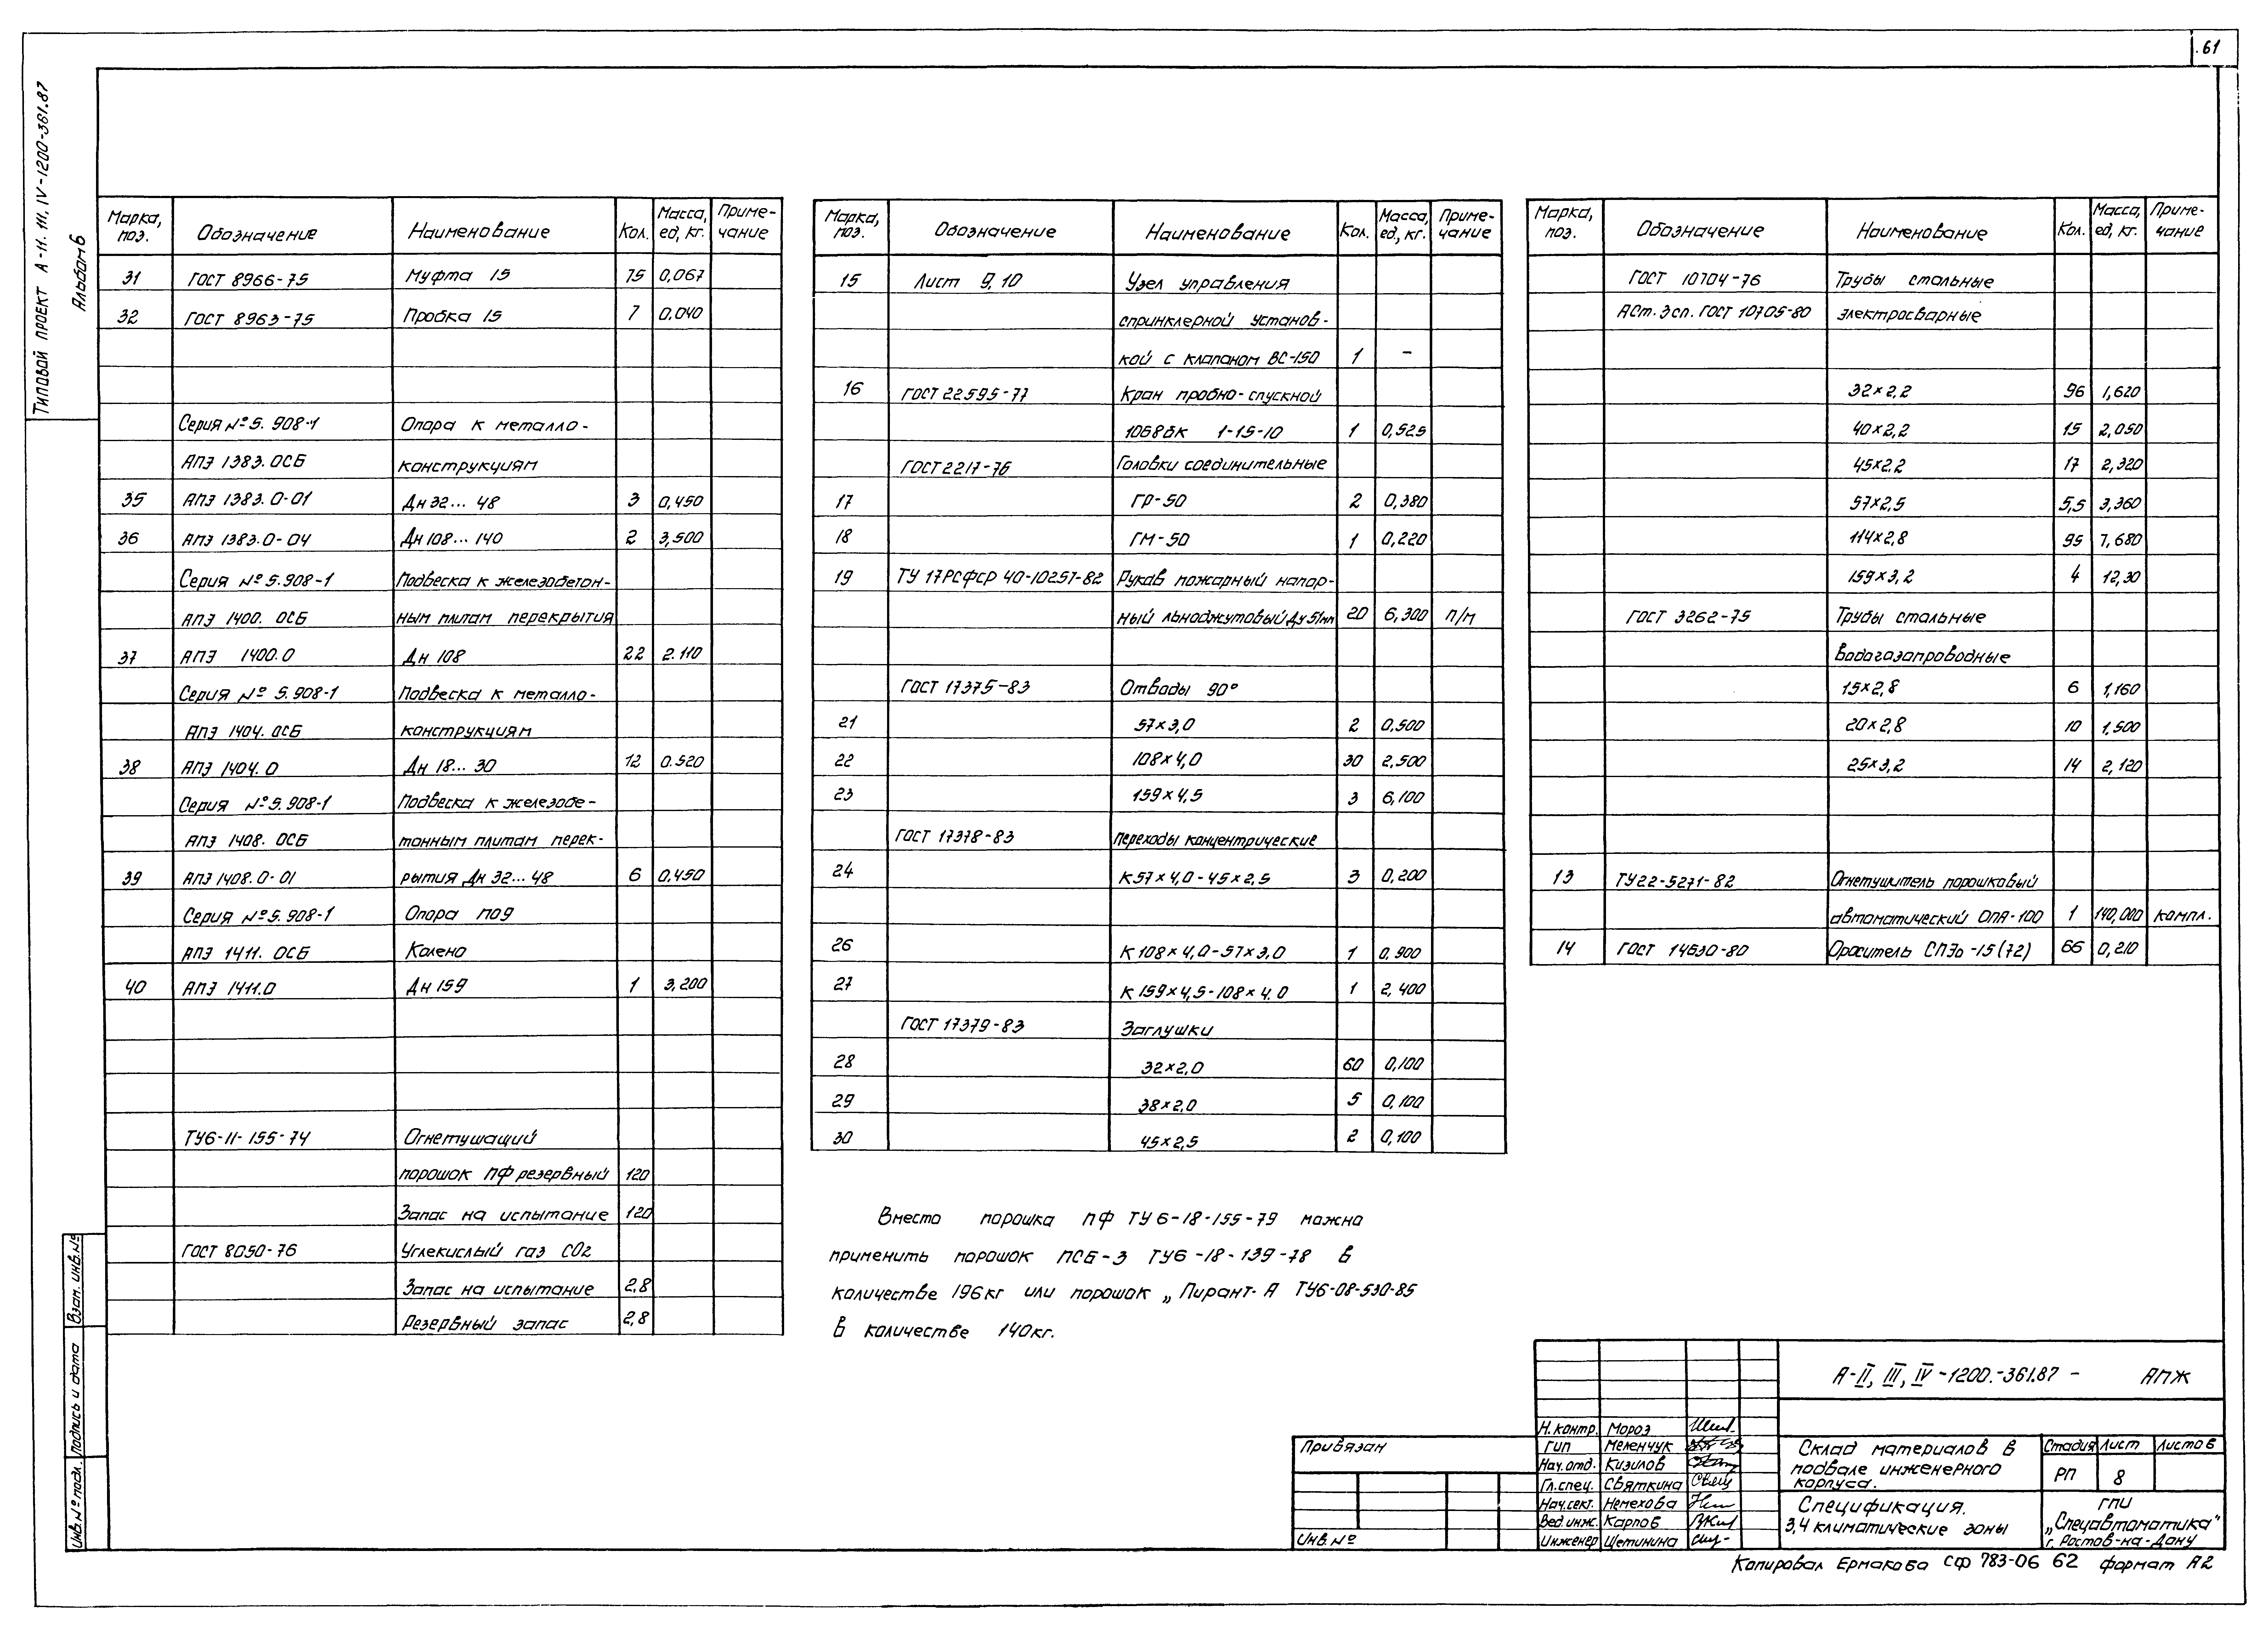 61
ТИПОВОЙ ПРОЕКТ А-11. 111, IV-1200-361.87
Альбом 6
Марка, поз. Обозначение Наименование Кол. Масса, ед, кг. Приме-чание
31 ГОСТ 8966-75 Муфта 15 75 0,067
32 ГОСТ 8963-75 Пробка 15 7 0.040
Серия №5. 908-1 Опора к металло-
АПЭ 1383. ОСБ конструкциям
35 АПЭ 1383. 0-01 Дн 32... 48 3 0,450
36 АПЭ 1383.0-04 Дн 108... 140 2 3,500
Серия №5.908-1 Подвеска к железобетон-
АПЭ 1400. ОСБ ным плитам перекрытия
37 АПЭ 1400.0 Дн 108 22 2.110
Серия № 5.908-1 Подвеска к металло-
АПЭ 1404. ОСБ конструкциям
38 АПЭ 1404. 0 Дн 18... 30 12 0.520
Серия №5.908-1 Подвеска к железобе-
АПЭ 1408. ОСБ тонным плитам перек-
39 АПЭ 1408.0-01 рытия Дн 32... 48 6 0.450
Серия №5.908-1 Опора под
АПЭ 1411. ОСБ Колено
40 АПЭ 1411.0 Дн 159 1 3,200
ТУ6-11-155-74 Огнетушащий
порошок ПФ резервный 120
Запас на испытание 120
ГОСТ 8050-76 Углекислый газ СО2
Запас на испытание 2,8
Резервный запас 2,8
Марка, поз. Обозначение Наименование Кол. Масса, ед, кг. Приме-чание
15 Лист 9, 10 Узел управления
спринклерной установ-
кой с клапаном ВС-150 1 –
16 ГОСТ 22595-77 Кран пробно-спускной
10Б8бк 1-15-10 1 0,525
ГОСТ 2217-76 Головки соединительные
17 ГР-50 2 0,380
18 ГМ-50 1 0,220
19 ТУ 17РСФСР 40-10257-82 Рукав пожарный напор-
ный льноджутовый Ду 51мм 20 6,300 п/м
ГОСТ 17375-83 Отводы 90°
21 57×3,0 2 0,500
22 108×4,0 30 2,500
23 159×4,5 3 6,100
ГОСТ 17378-83 Переходы концентрические
24 К57×4,0-45×2,5 3 0,200
26 К 108×4,0-57×3,0 1 0,900
27 К 159×4,5-108×4.0 1 2,400
ГОСТ 17379-83 Заглушки
28 32×2,0 60 0,100
29 38×2,0 5 0,100
30 45×2,5 2 0,100
Вместо порошка ПФ ТУ 6-18-155-79 можно
применить порошок ПСБ-3 ТУ6-18-139-78 в
количестве 196кг или порошок „Пирант-А ТУ6-08-530-85
в количестве 140кг.
Марка, поз. Обозначение Наименование Кол. Масса, ед, кг. Приме-чание
ГОСТ 10704-76 Трубы стальные
АСт. 3сп. ГОСТ 10705-80 электросварные
32×2,2 96 1,620
40×2,2 15 2,050
45×2,2 17 2,320
57×2,5 5,5 3,360
114×2,8 95 7,680
159×3,2 4 12,30
ГОСТ 3262-75 Трубы стальные
водогазопроводные
15×2,8 6 1,160
20×2,8 10 1,500
25×3,2 14 2,120
13 ТУ22-5271-82 Огнетушитель порошковый
автоматический ОПА-100 1 140,000 компл.
14 ГОСТ 14630-80 Ороситель СПЭо-15(72) 66 0,210
А-II, III, IV-1200.-361.87 - АПЖ
Н. контр. Мороз
ГИП Меленчук
Нач. отд. Кизилов
Гл.спец. Святкина
Нач.сект. Немехова
Вед.инж. Карпов
Инженер Щетинина
Склад материалов в
подвале инженерного
корпуса.
Стадия Лист Листов
РП 8
Спецификация.
3,4 климатические зоны
ГПИ
„Спецавтоматика"
г. Ростов-на-Дону
Привязан
Инв. №
Инв. № подл. Подпись и дата Взам. инв. №
Копировал Ермакова СФ 783-06 62 формат А2